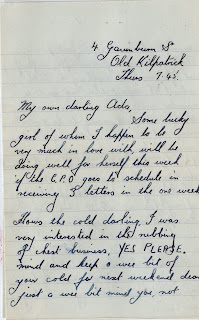 4 Gavinburn St
Old Kilpatrick
Thurs 7.45.
My own darling Ada,
Some lucky
girl of whom I happen to be
very much in love with, will be
doing well for herself this week
if the G.P.O goes to schedule in
receiving 3 letters in the one week
Hows the cold darling, I was
very interested in the rubbing
of chest business, YES PLEASE.
mind and keep a wee bit of
your cold for next weekend dear
just a wee bit mind you, not